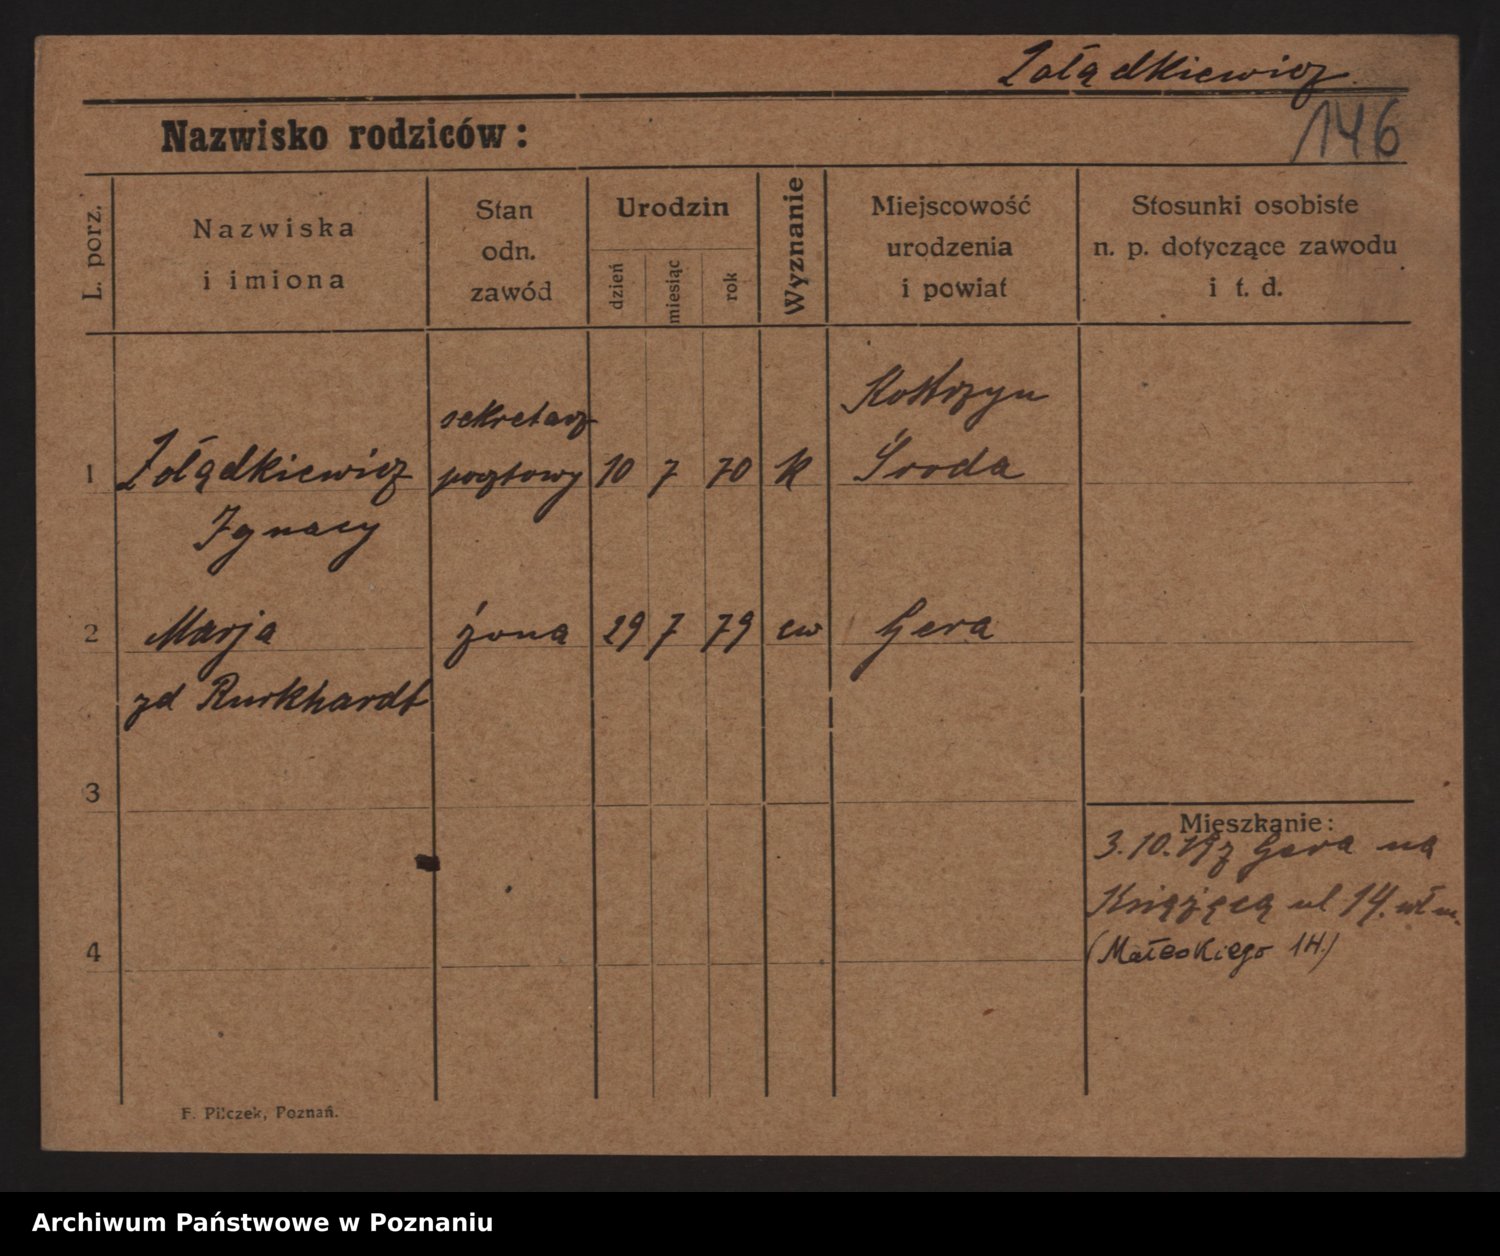 Żołądkiewicz
Nazwisko rodziców:
146
L. porz.
Nazwiska
i imiona
Stan
odn.
zawód
Urodzin
dzień
miesiąc
rok
Wyznanie
Miejscowość
urodzenia
i powiat
Stosunki osobiste
n. p. dotyczące zawodu
i t. d.
1
Żołądkiewicz
Ignacy
sekretarz
pocztowy
10
7
70
k
Środa
2
Marja
zd Burkhardt
żona
29
7
79
ew
Gera
3
4
Mieszkanie:
3.10.19 z Gera na
Książęcą ul 14.
(Małeckiego 14.)
F. Pilczek, Poznań.
Archiwum Państwowe w Poznaniu